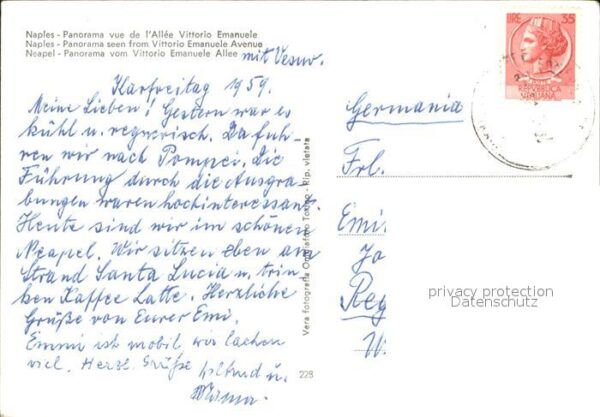 Naples - Panorama vue de l'Allée Vittorio Emanuele
Naples - Panorama seen from Vittorio Emanuele Avenue
Neapel - Panorama vom Vittorio Emanuele Allee mit Vesuv.
Karfreitag 1959.
Meine Lieben! Gestern war es
kühl u. regnerisch. Da fuh-
ren wir nach Pompei. Die
Führung durch die Ausgra-
bungen waren hochinteressant.
Heute sind wir im schönen
Neapel. Wir sitzen eben am
Strand Santa Lucia u. trin-
ken Kaffee Latte. Herzliche
Grüße von Eurer Emi.
Emmi ist mobil wir lachen
viel. Herzl. Grüße u.
Mama.
228
Vera fotografia Rip. vietata
LIRE 35
REPVBBLICA
ITALIANA
Germania
Frl.
Emi.
Jo
Reg
W.
privacy protection
Datenschutz